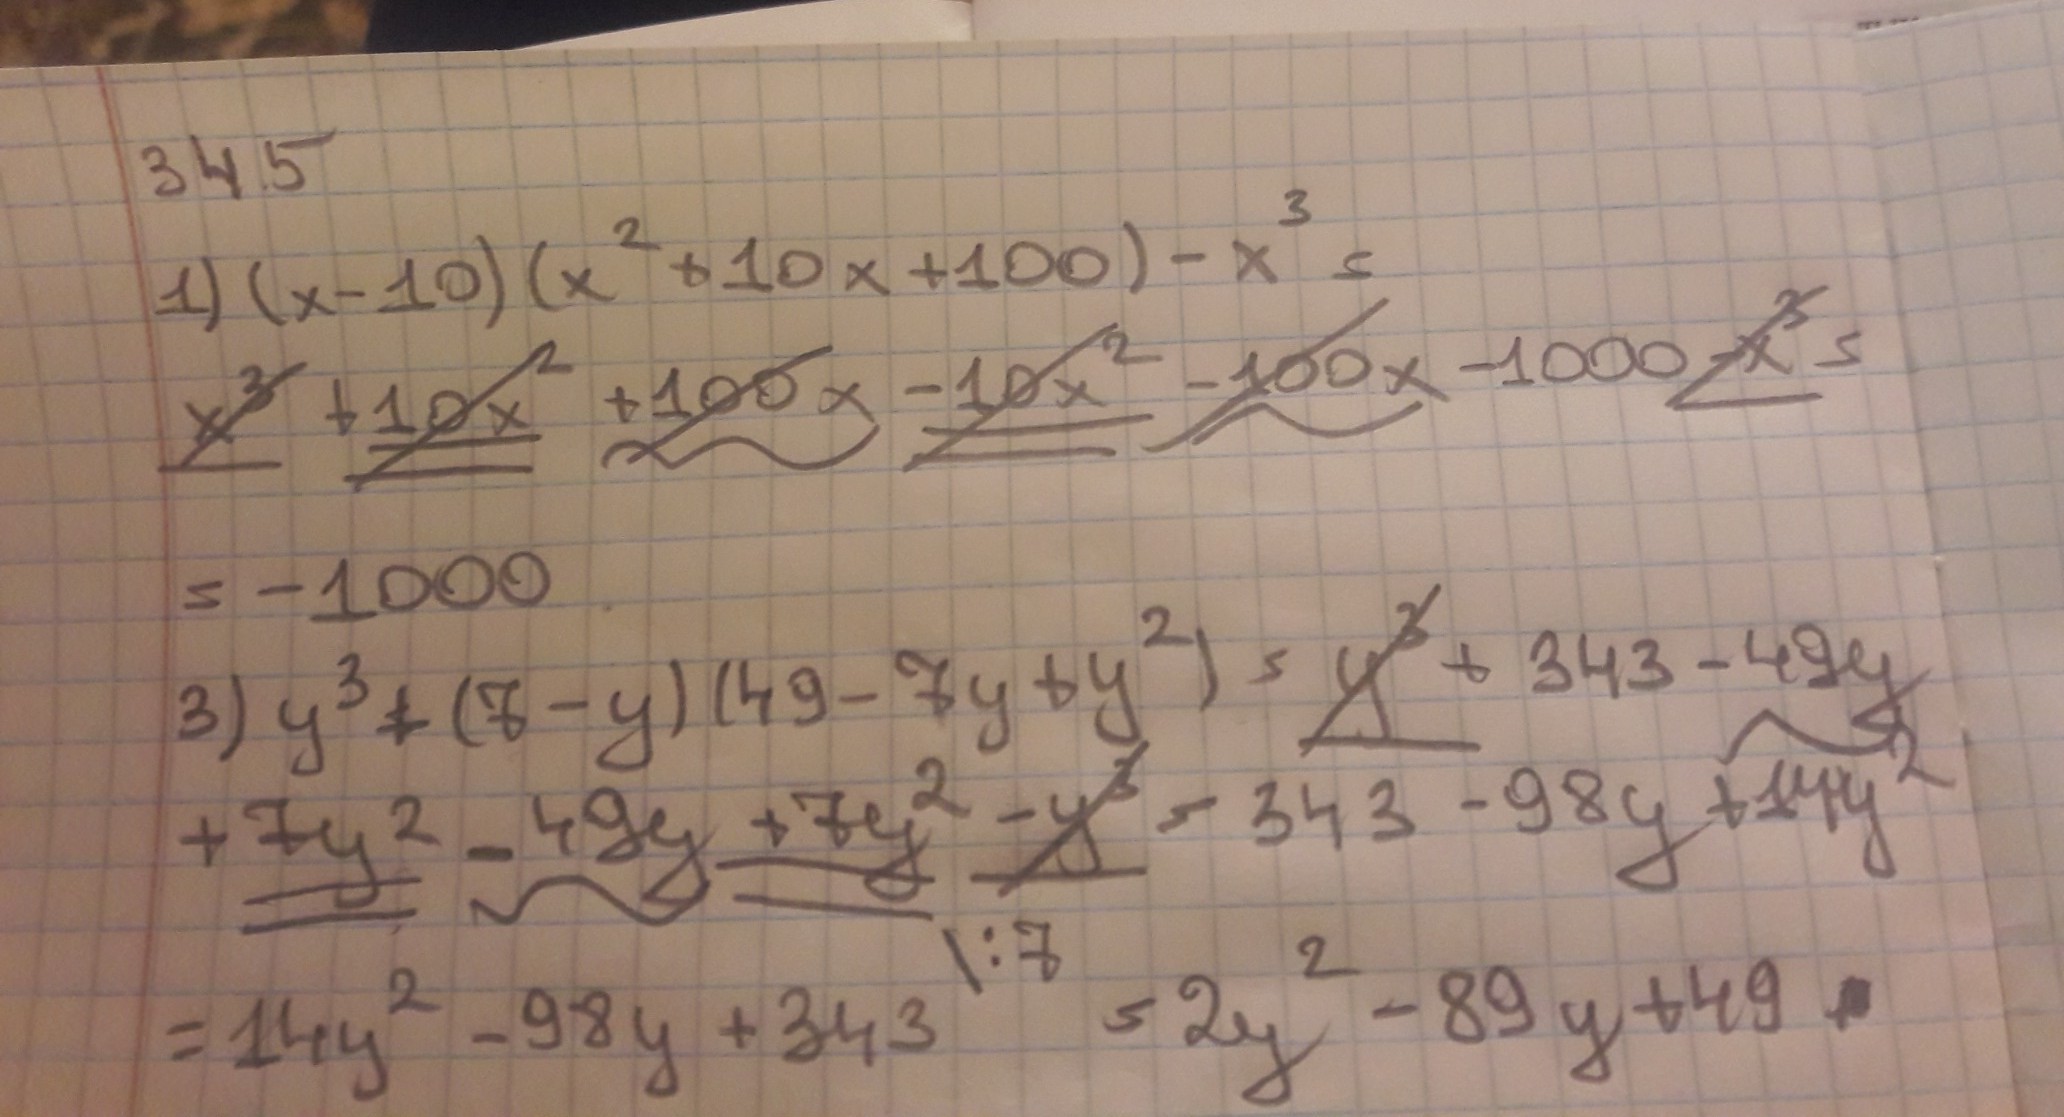 345
1) (x-10)(x²+10x+100)-x³=
x³ +10x² +100x -10x² -100x -1000 -x³=
= -1000
3) y³+(7-y)(49-7y+y²) = y³+343-49y
+7y² -49y +7y² -y³ = 343 -98y +14y²
= 14y² -98y +343 \:7 = 2y² -89y +49